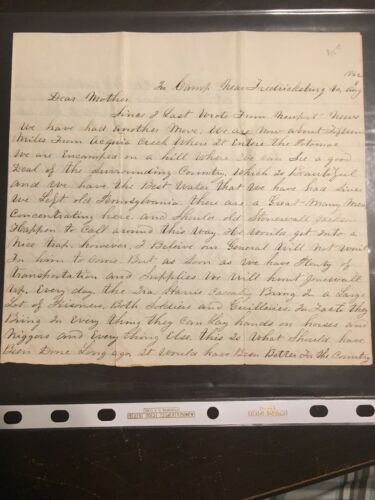 In Camp Near Fredricksburg Va, Aug
Dear Mother
Since I Last Wrote From Newport News
We have had another Move. We are Now about Fifteen
Miles From Acquia Creek Where It Enters the Potomac
We are Encamped on a hill Where We Can See a good
Deal of the Surrounding Country, Which is beautiful
and We have the Best Water that We have had Since
We Left old Pennsylvania there are a Great Many Men
Concentrating here. and Should old Stonewall Jackson
Happen to Call around this Way He Would get Into a
Nice trap, however, I Believe our General Will Not Wait
For him to Come. But as Soon as We have Plenty of
Transportation and Supplies We Will hunt Stonewall
Up, Every day the Ira Harris Cavalry Bring In a Large
Lot of Prisoners, Both Soldiers and Guerilleries. In Facts they
Bring In Every thing they Can Lay hands on horses and
Niggers and Every thing Else. this is What Should have
Been Done Long ago. It Would have Been Better For the Country